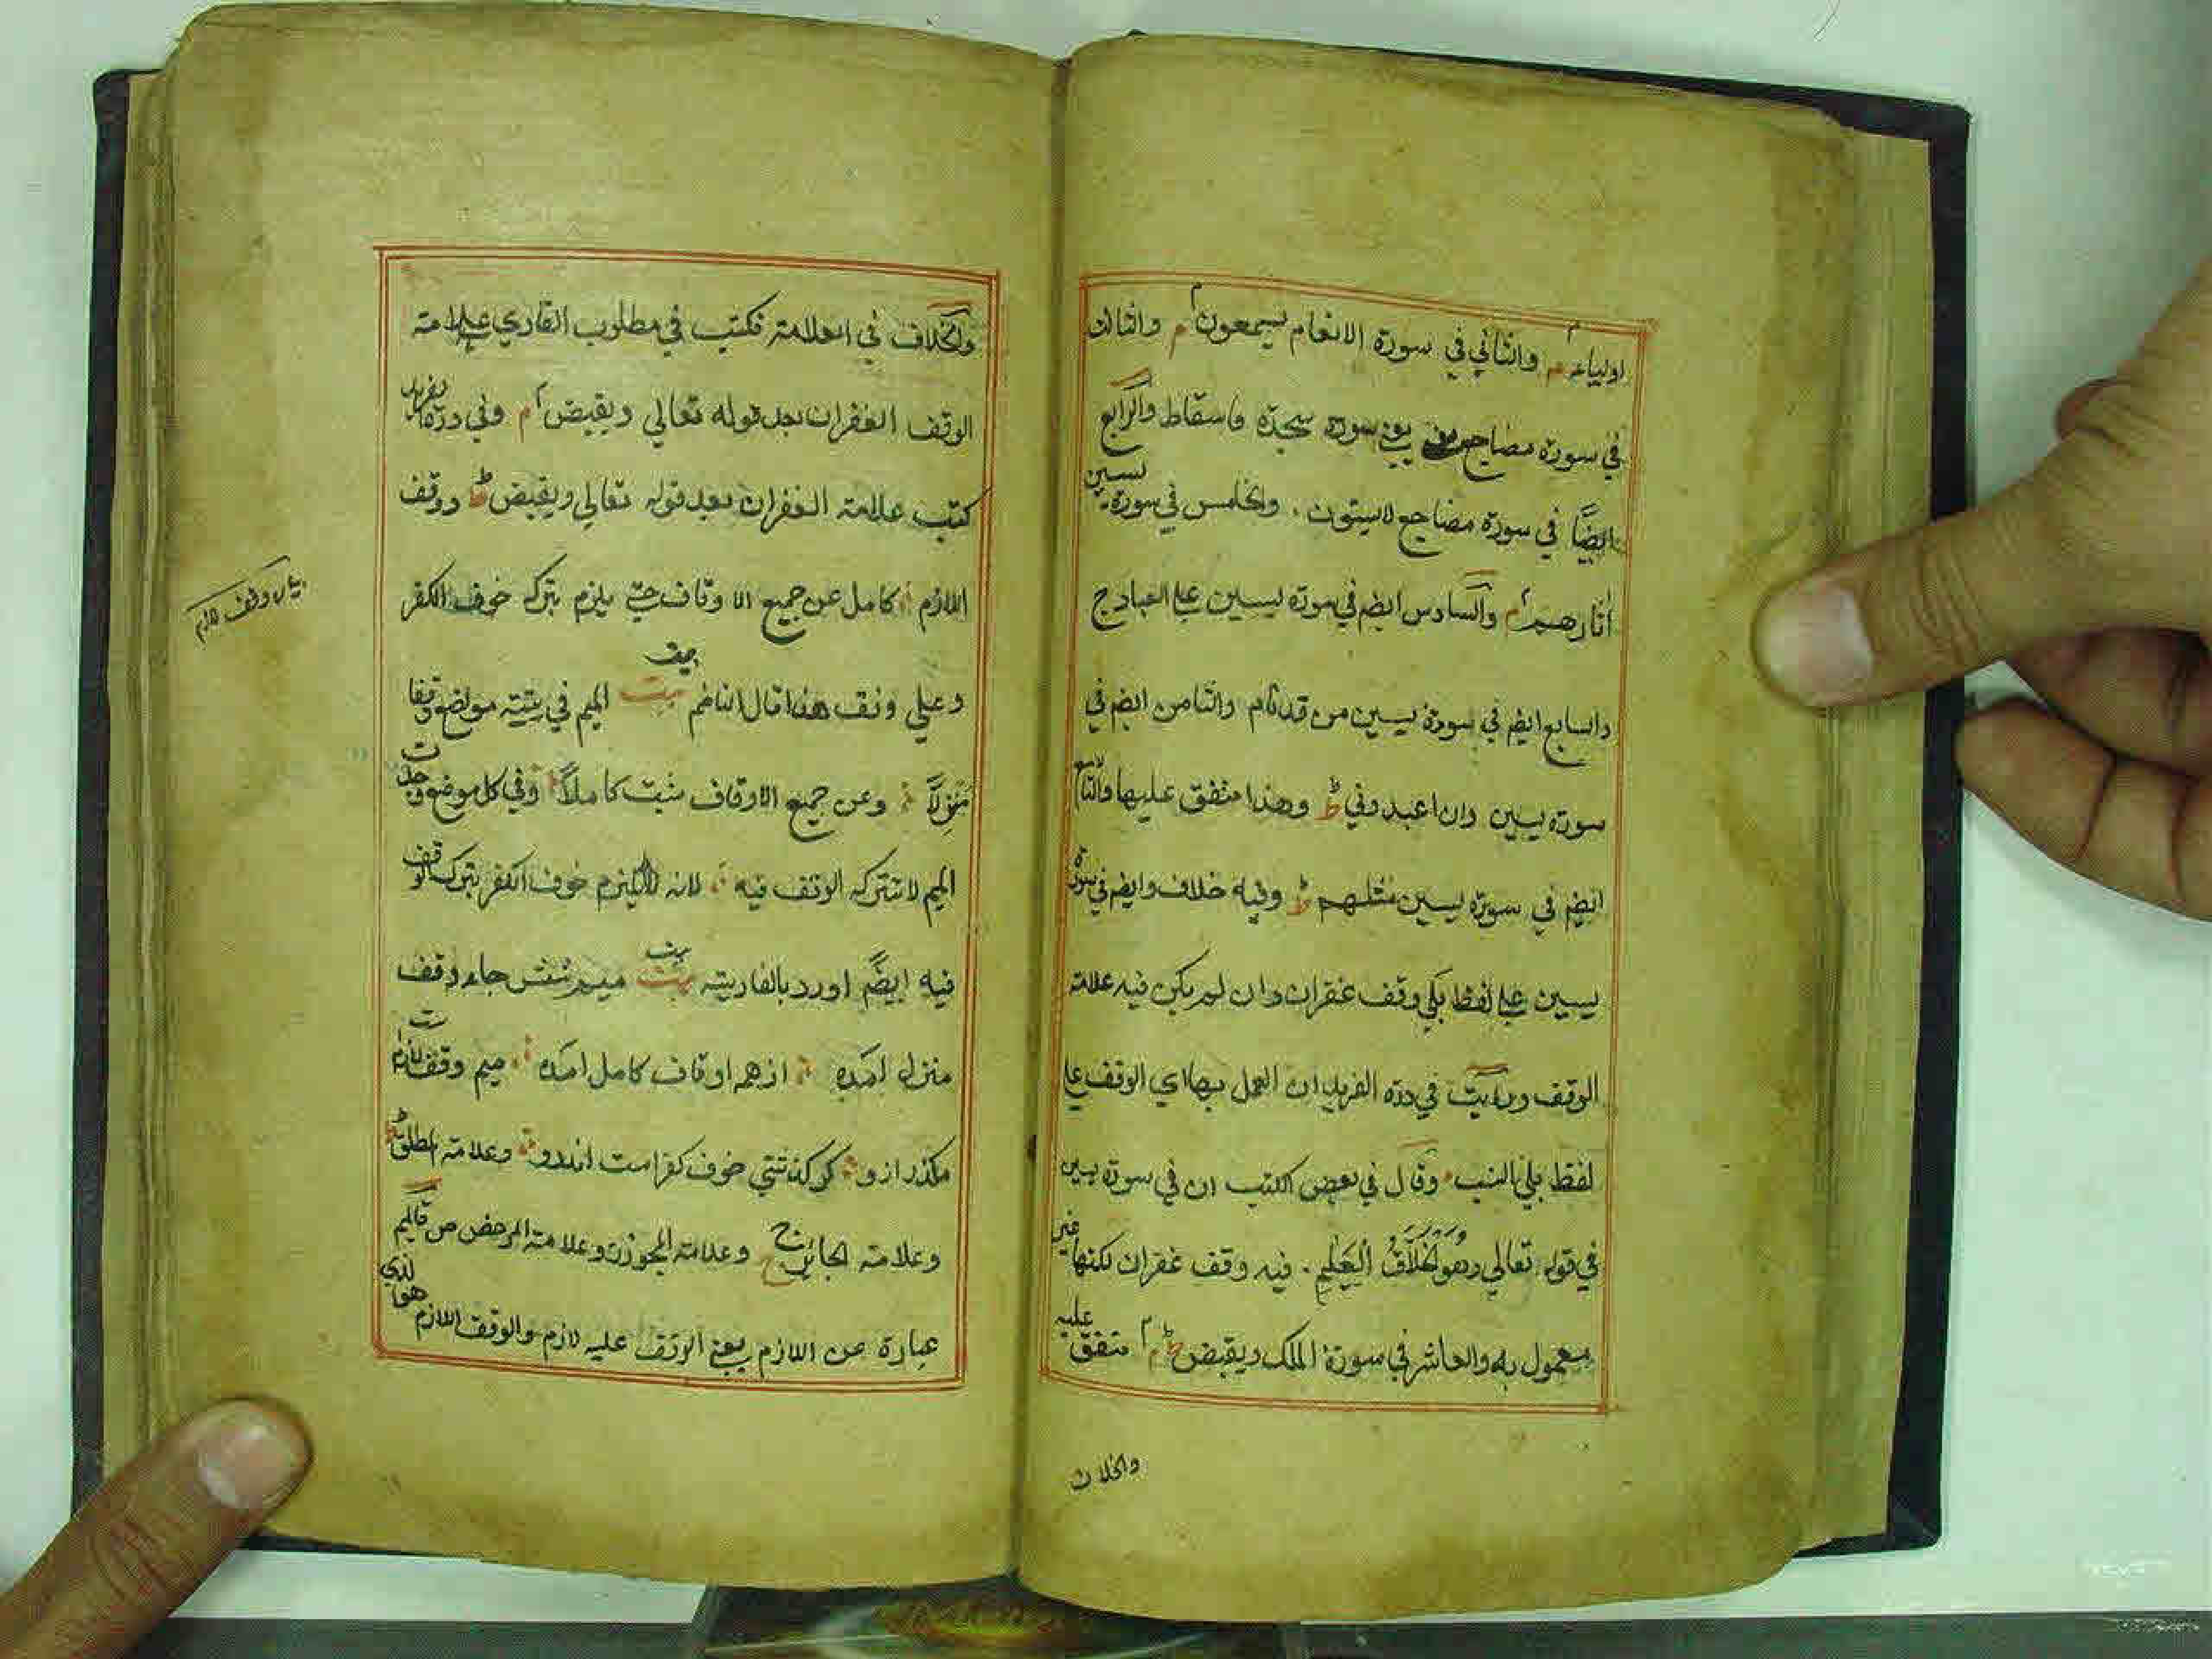 اولياء م والثاني في سورة الانعام يسمعون م والثالث
في سورة مضاجع يعني سورة سجدة فاسقاط والرابع
ايضًا في سورة مضاجع لايستون . والخامس في سورة يسين
اثارهم م والسادس ايضم في سورة يسين علي العباد ج
والسابع ايضم في سورة يسين من قدنام والثامن ايضم في
سورة يسين وان اعبدوني ط وهذا متفق عليها والتاسع
ايضم في سورة يسين مثلهم ط وفيه خلاف وايضم في سورة
يسين علي لفظ بلي وقف غفران وان لم يكن فيه علامة
الوقف ورايت في درة الفريد ان العمل بها اي الوقف علي
لفظ بلي انسب وقال في بعض الكتب ان في سورة يسين
في قوله تعالي وهو الخلاق العليم . فيه وقف غفران لكنها غير
معمول به والعاشر في سورة الملك ويقبض ط م متفق عليه
والخلاف
والخلاف في العلامة فكتب في مطلوب القاري علامة
الوقف الغفران بعد قوله تعالي ويقبض م وفي درة الفريد
كتب علامة الغفران بعد قوله تعالي ويقبض ط ووقف
اللازم كامل عن جميع الاوقاف حتي يلزم بتركه خوف الكفر
بيان وقف لازم
وعلي وفق هذا قال الناظم بيت الميم في ستة مواضع وقفا
منزلًا وعن جميع الاوقاف مثبت كاملًا وفي كل موضع وجدت
الميم لاتترك الوقف فيه لانه يلزم خوف الكفر بترك الوقف
فيه ايضًم اورد بالفارسية بيت ميم شش جاء وقف
منزل امده از هم اوقاف كامل امده ميم وقف لازمست
مكذر ازو كر كذشتي خوف كفر است اندرو وعلامة المطلق ط
وعلامة الجائز ج وعلامة المجوز ز وعلامة المرخص ص فالميم
عبارة عن اللازم يعني الوقف عليه لازم والوقف اللازم هو الذي